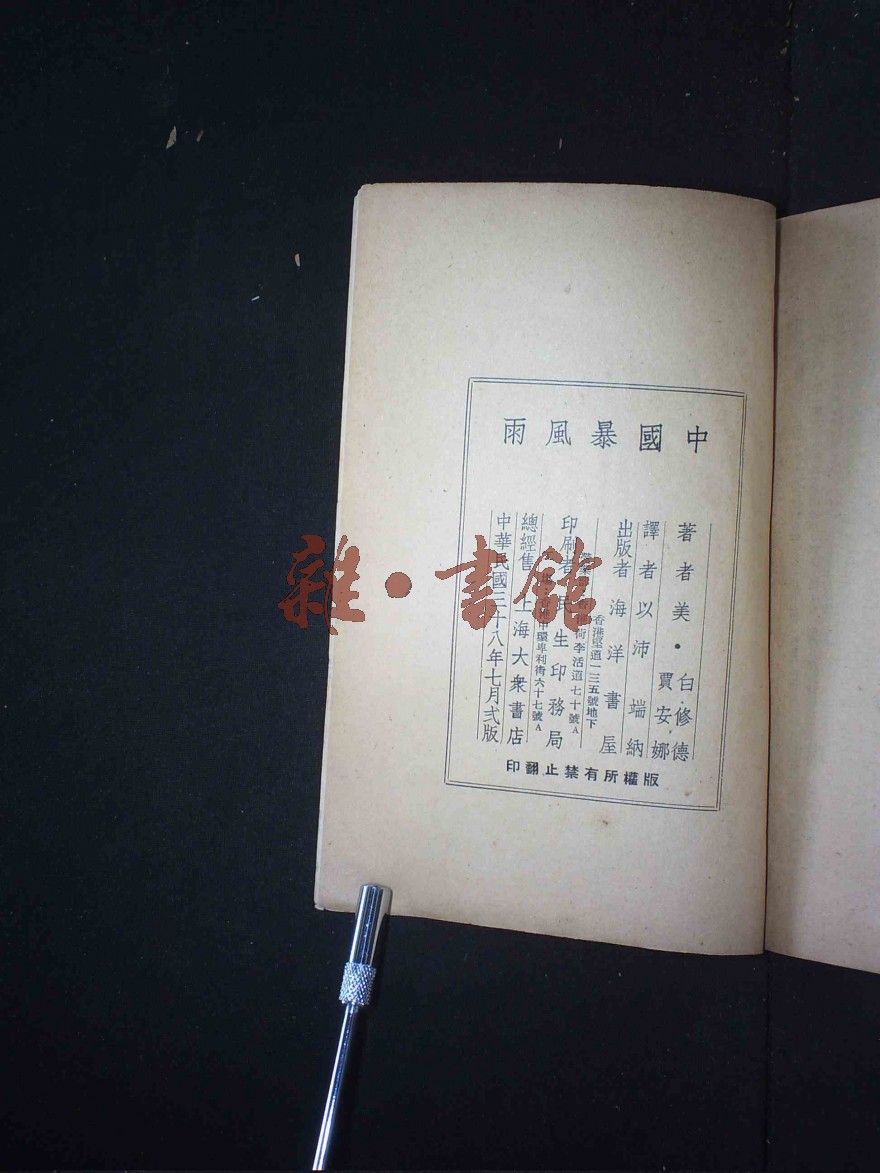 中國暴風雨
著者 美・白修德
賈安娜
譯者 以沛端納
出版者 海洋書屋
香港望道一三五號地下
印刷者 民生印務局
街李活道七十號A
總經售 上海大衆書店
中環卑利街六十七號A
中華民國三十八年七月弍版
版權所有禁止翻印
雜・書館